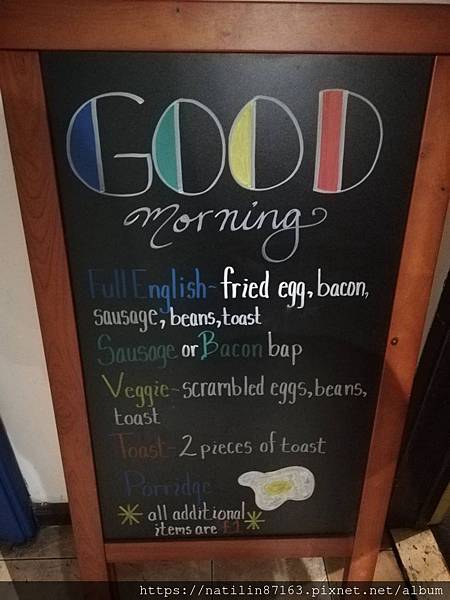 GOOD
morning
Full English - fried egg, bacon,
sausage, beans, toast
Sausage or Bacon bap
Veggie - scrambled eggs, beans,
toast
Toast - 2 pieces of toast
Porridge
all additional
items are £1
https://natilin87163.pixnet.net/album